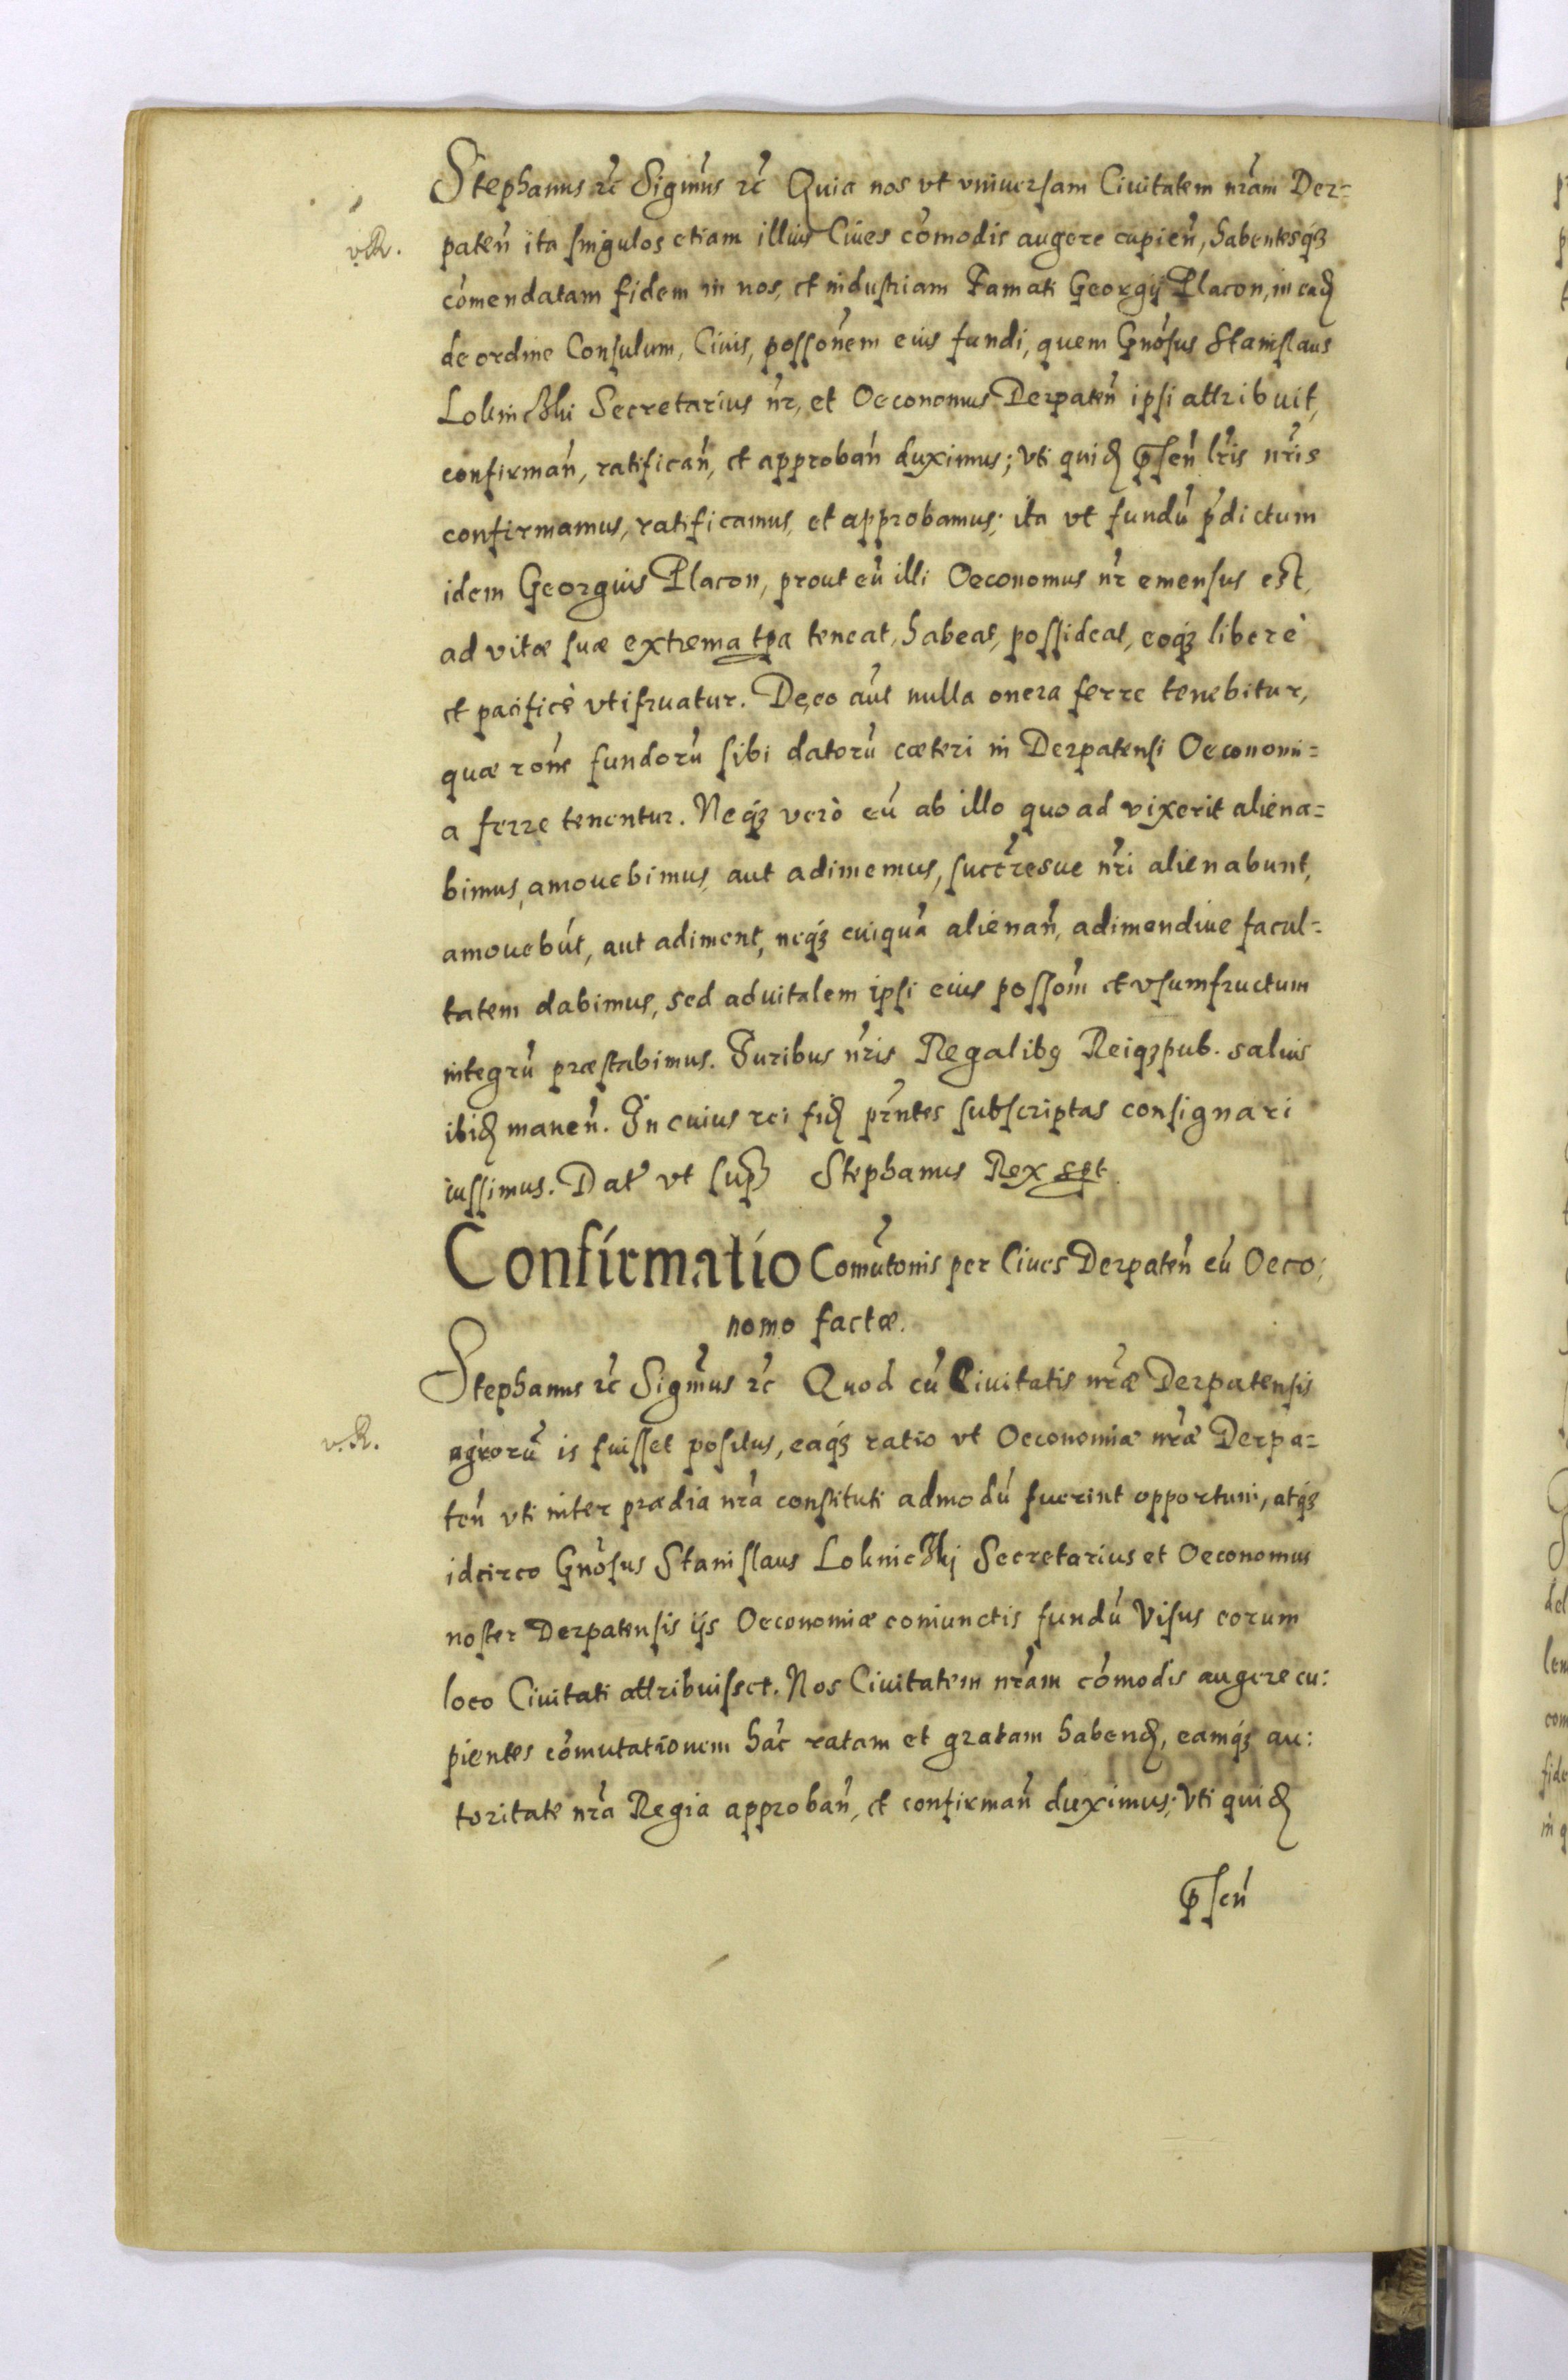 Stephanus rc̃ Sigm̃us rc̃ Quia nos vt vniuersam Ciuitatem nr̃am Der=
v.R.
pateñ ita singulos etiam illius Ciues com̃odis augere cupieñ, habentesq́ꝫ
com̃endatam fidem in nos, et industriam Famati Georgij Placon, in ead̃
de ordine Consulum, Ciuis, possoñem eius fundi, quem Gnõsus Stanislaus
Lokniczki Secretarius nr̃, et Oeconomus Derpateñ ipsi attribuit,
confirmañ, ratificañ, et approbañ duximus; Vti quid̃ p̃señ lr̃is nr̃is
confirmamus, ratificamus, et approbamus; ita vt fundũ p̃dictum
idem Georgius Placon, prout eũ illi Oeconomus nr̃ emensus est,
ad vitæ suæ extrema tp̃a teneat, habeat, possideat, eoq́ꝫ liberè
et pacificè vtifruatur. De eo aũt nulla onera ferre tenebitur,
quæ rõne fundorũ sibi datorũ cæteri in Derpatensi Oeconomi=
a ferre tenentur. Neq́ꝫ verò eũ ab illo quoad vixerit aliena=
bimus, amouebimus, aut adimemus, succr̃esue nr̃i alienabunt,
amouebũt, aut adiment, neq́ꝫ cuiquã alienañ, adimendiue facul=
tatem dabimus, sed aduitalem ipsi eius possom̃ et vsumfructum
integrũ præstabimus. Iuribus nr̃is Regalibꝯ Reiqꝫ pub. saluis
ibid̃ maneñ. In cuius rei fid̃ pr̃ntes subscriptas consignari
iussimus. Dat̃ vt sup̃ Stephanus Rex sp̃t
Confirmatio Com̃utonis per Ciues Derpateñ cũ Oeco:
nomo factæ.
Stephanus rc̃ Sigm̃us rc̃ Quod cũ Ciuitatis nr̃æ Derpatensis
v.R.
agrorũ is fuisset positus, eaq́ꝫ ratio vt Oeconomiæ nr̃æ Derpa=
teñ vti inter prædia nr̃a constituti admodũ fuerint opportuni, atq́ꝫ
idcirco Gnõsus Stanislaus Lokniczkj Secretarius et Oeconomus
noster Derpatensis ijs Oeconomiæ coniunctis fundũ Visus eorum
loco Ciuitati attribuisset. Nos Ciuitatem nr̃am com̃odis augere cu:
pientes com̃utationem hãc ratam et gratam habend̃, eamq́ꝫ au:
toritate nr̃a Regia approbañ, et confirmañ duximus; Vti quid̃
p̃señ